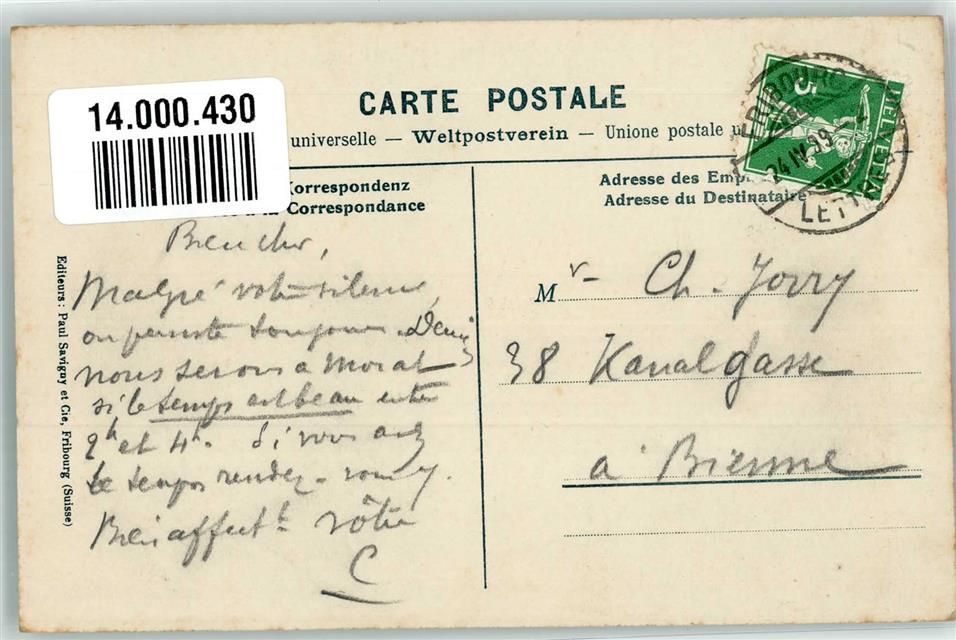 14.000.430
CARTE POSTALE
universelle — Weltpostverein — Unione postale u
Korrespondenz
la Correspondance
Adresse des Emp
Adresse du Destinataire
HELVETIA
5
FRIBOURG
24 IV 19
LETTR
Bien cher,
Malgré votre silence,
on pense toujours. Demain
nous serons a Morat
si le temps est beau entre
2h et 4h. Si vous avez
le temps rendez-vous y.
Bien affectt
vôtre
C
Mr Ch. Jorry
38 Kanalgasse
à Bienne
Editeurs: Paul Savigny et Cie, Fribourg (Suisse)